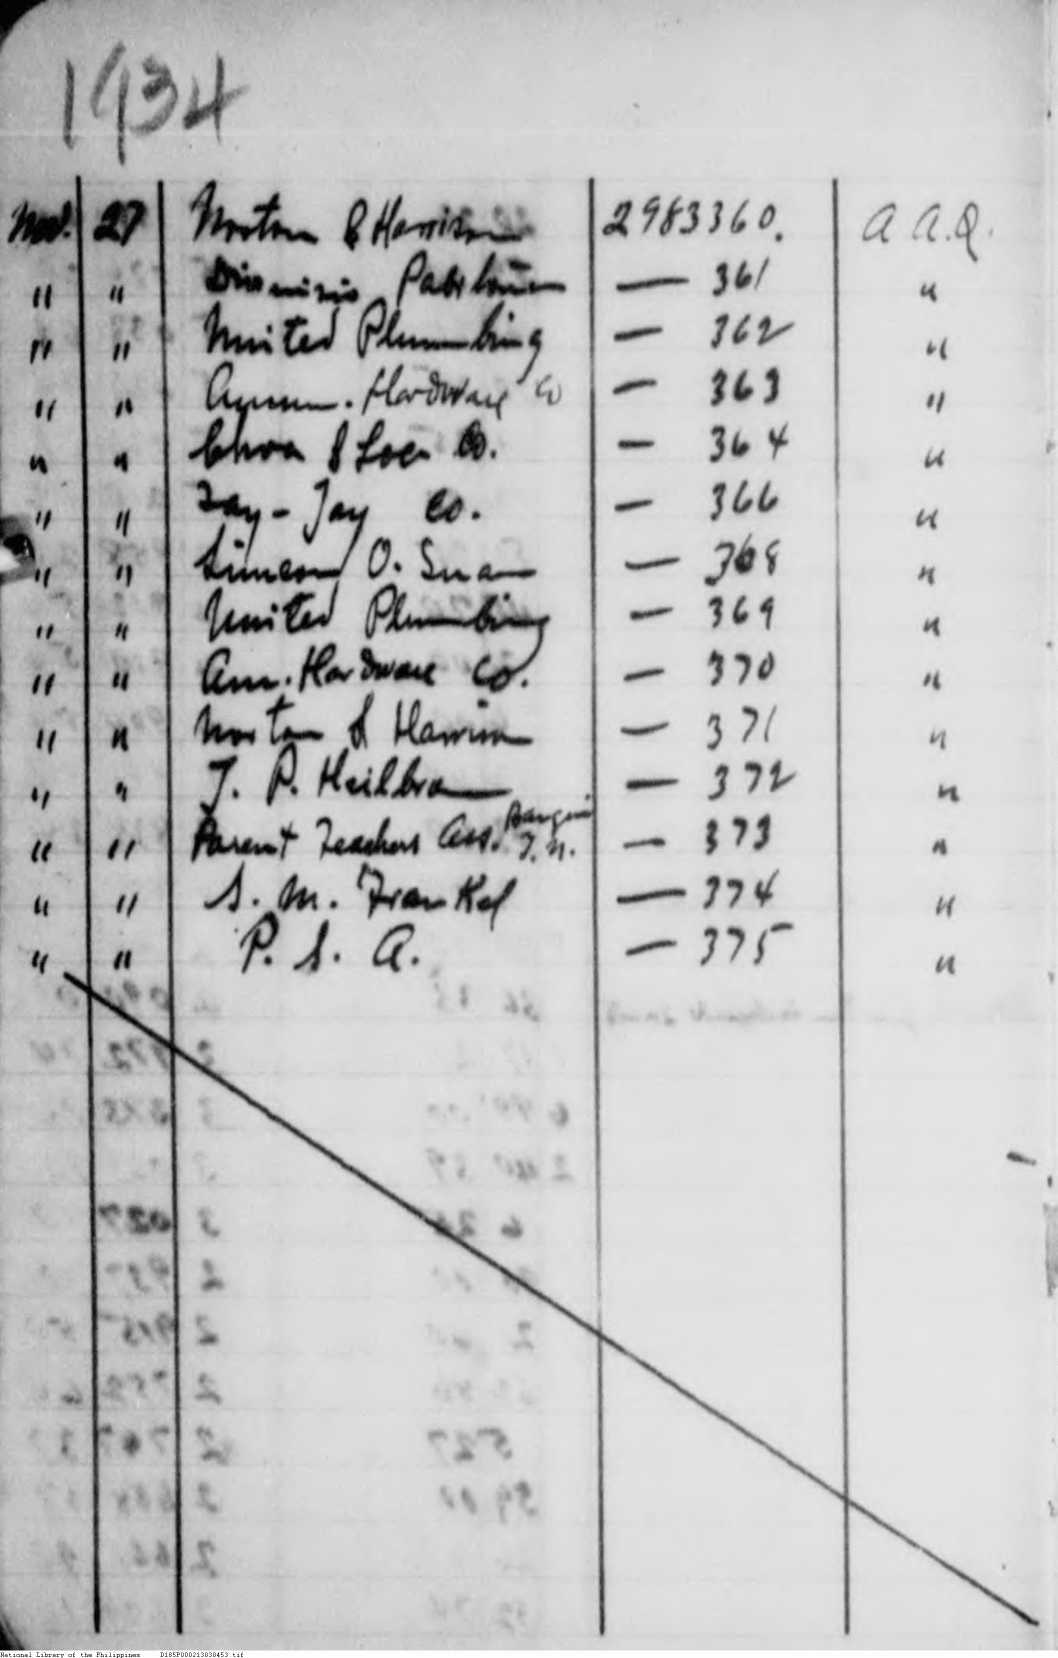 1934
Nov. 27 Norton & Harrison 2983360. A.A.Q.
" " Dionisio — 361 "
" " United Plumbing — 362 "
" " Hardware Co — 363 "
" " Chua & Co. — 364 "
" " Jay-Jay Co. — 366 "
" " Simeon O. — 368 "
" " United Plumbing — 369 "
" " Am. Hardware Co. — 370 "
" " Norton & Harrison — 371 "
" " J. P. Heilbron — 372 "
" " Parent Teachers Ass. — 373 "
" " S. M. Frankel — 374 "
" " P. S. A. — 375 "
National Library of the Philippines D185P000213838453.tif